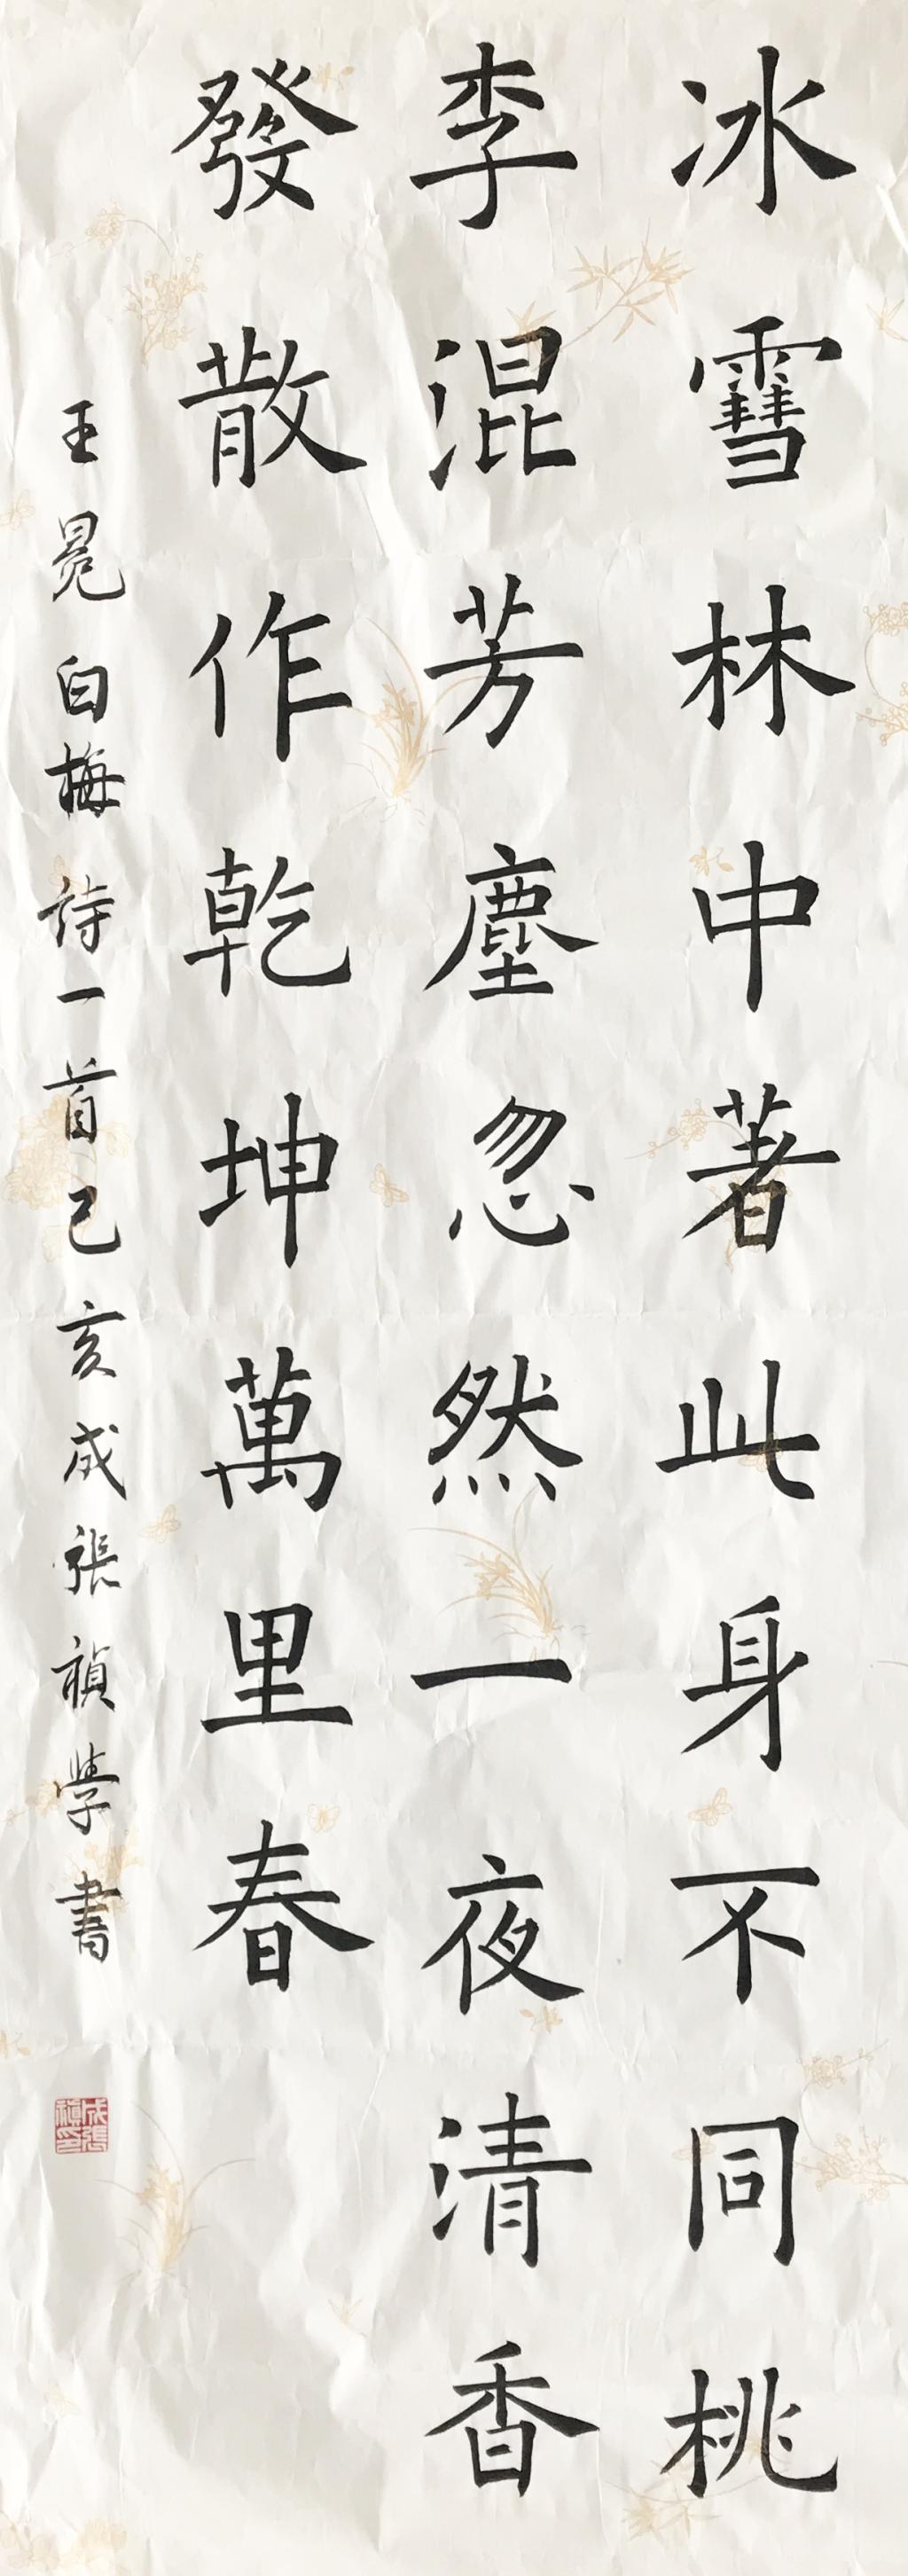 冰雪林中著此身不同桃
李混芳塵忽然一夜清香
發散作乾坤萬里春
王冕白梅詩一首己亥成張禎學書